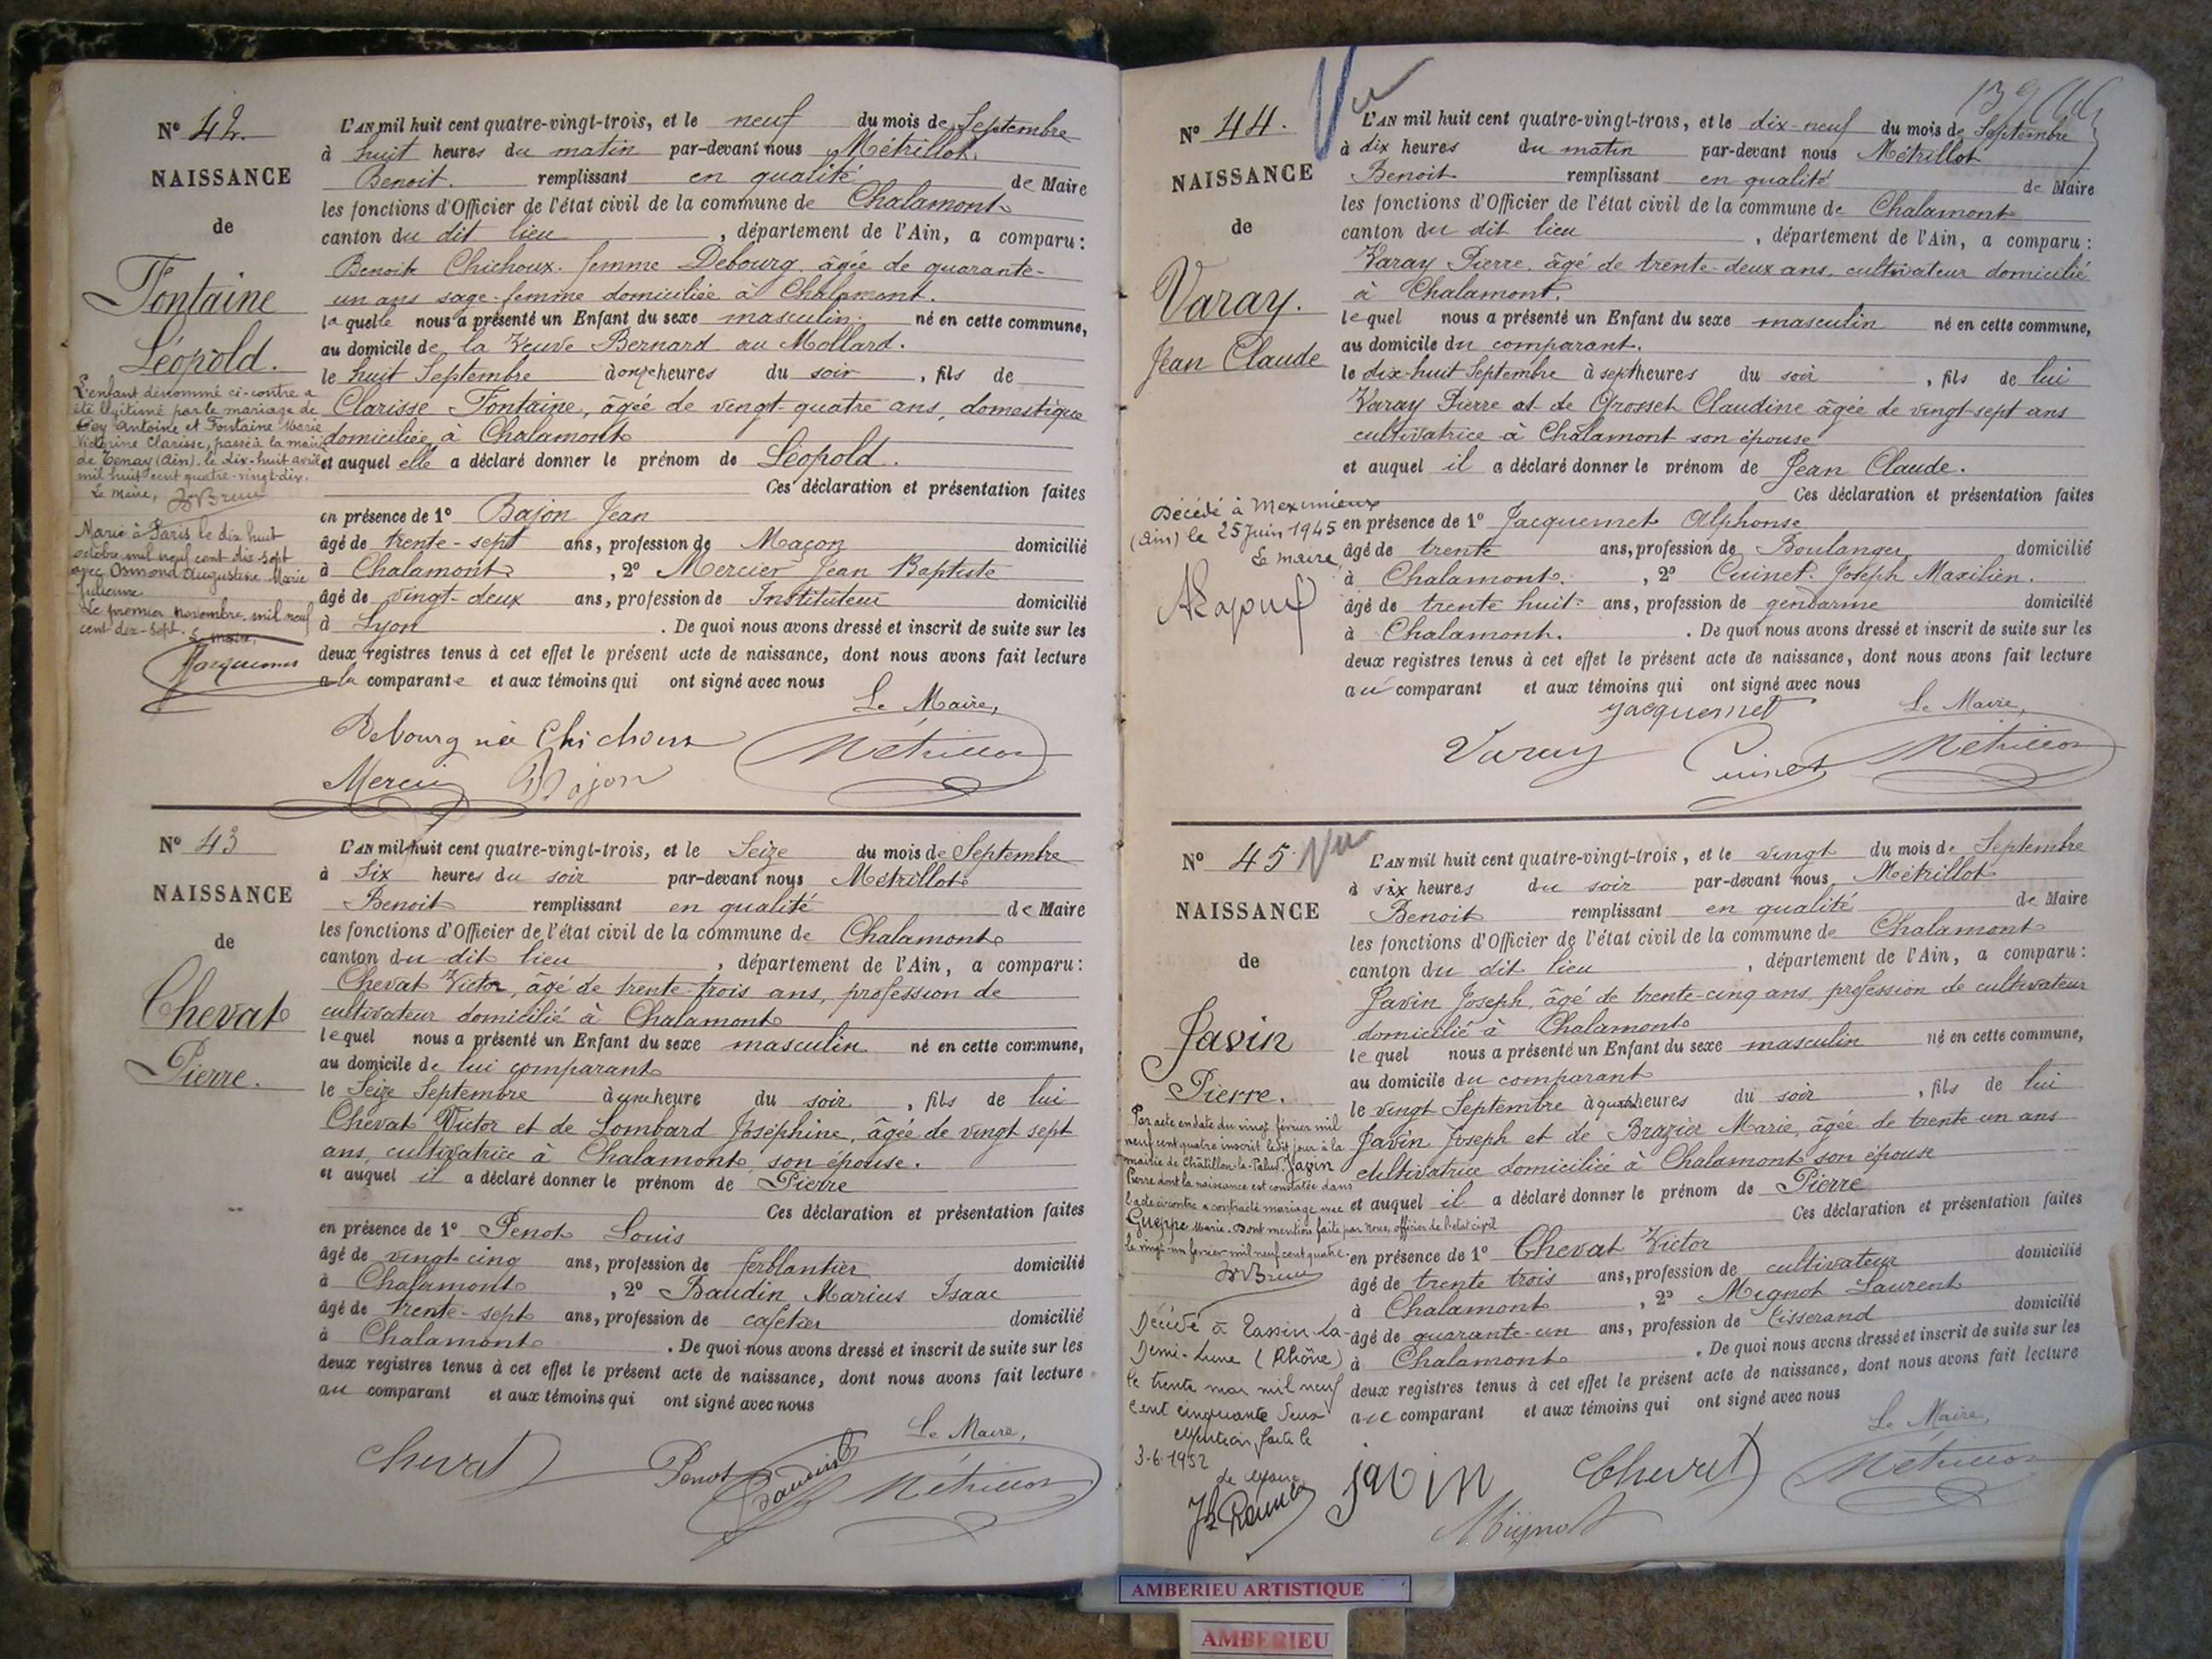 N° 42.
NAISSANCE
de
Fontaine
Léopold.
L'enfant dénommé ci-contre a
été légitimé par le mariage de
Goy Antoine et Fontaine Marie
Victorine Clarisse, passé à la mairie
de Tenay (Ain), le dix-huit avril
mil huit cent quatre-vingt-dix.
Le Maire,
Marié à Paris le dix huit
octobre mil neuf cent dix sept
avec Osmond Augustine Marie
Julienne
Le premier novembre mil neuf
cent dix-sept. Le Maire,
Jacquemet
L'AN mil huit cent quatre-vingt-trois, et le neuf du mois de Septembre
à huit heures du matin par-devant nous Métrillot
Benoit. remplissant en qualité de Maire
les fonctions d'Officier de l'état civil de la commune de Chalamont
canton du dit lieu, département de l'Ain, a comparu:
Benoite Chichoux. femme Debourg. âgée de quarante-
un ans sage-femme domiciliée à Chalamont.
laquelle nous a présenté un Enfant du sexe masculin. né en cette commune,
au domicile de la Veuve Bernard au Mollard.
le huit Septembre à onze heures du soir, fils de
Clarisse Fontaine, âgée de vingt-quatre ans, domestique
domiciliée à Chalamont
et auquel elle a déclaré donner le prénom de Léopold.
Ces déclaration et présentation faites
en présence de 1° Bajon Jean
âgé de trente-sept ans, profession de Maçon domicilié
à Chalamont, 2° Mercier Jean Baptiste
âgé de vingt-deux ans, profession de Instituteur domicilié
à Lyon. De quoi nous avons dressé et inscrit de suite sur les
deux registres tenus à cet effet le présent acte de naissance, dont nous avons fait lecture
a la comparante et aux témoins qui ont signé avec nous
Le Maire,
Debourg née Chichoux Métrillot
Mercier Bajon
N° 43
NAISSANCE
de
Chevat
Pierre.
L'AN mil huit cent quatre-vingt-trois, et le Seize du mois de Septembre
à Six heures du soir par-devant nous Métrillot
Benoit remplissant en qualité de Maire
les fonctions d'Officier de l'état civil de la commune de Chalamont
canton du dit lieu, département de l'Ain, a comparu:
Chevat Victor, âgé de trente-trois ans, profession de
cultivateur domicilié à Chalamont
lequel nous a présenté un Enfant du sexe masculin né en cette commune,
au domicile de lui comparant
le Seize Septembre à une heure du soir, fils de lui
Chevat Victor et de Lombard Joséphine, âgée de vingt sept
ans, cultivatrice à Chalamont, son épouse.
et auquel il a déclaré donner le prénom de Pierre
Ces déclaration et présentation faites
en présence de 1° Penot Louis
âgé de vingt cinq ans, profession de ferblantier domicilié
à Chalamont, 2° Baudin Marius Isaac
âgé de trente-sept ans, profession de cafetier domicilié
à Chalamont. De quoi nous avons dressé et inscrit de suite sur les
deux registres tenus à cet effet le présent acte de naissance, dont nous avons fait lecture
au comparant et aux témoins qui ont signé avec nous
Le Maire,
Chevat Penot Baudin Métrillot
139
Vu
N° 44.
NAISSANCE
de
Varay.
Jean Claude
Décédé à Meximieux
(Ain) le 25 Juin 1945
Le maire,
L'AN mil huit cent quatre-vingt-trois, et le dix-neuf du mois de Septembre
à dix heures du matin par-devant nous Métrillot
Benoit remplissant en qualité de Maire
les fonctions d'Officier de l'état civil de la commune de Chalamont
canton du dit lieu, département de l'Ain, a comparu:
Varay Pierre, âgé de trente-deux ans, cultivateur domicilié
à Chalamont.
lequel nous a présenté un Enfant du sexe masculin né en cette commune,
au domicile du comparant.
le dix-huit Septembre à sept heures du soir, fils de lui
Varay Pierre et de Grosset Claudine âgée de vingt-sept ans
cultivatrice à Chalamont son épouse
et auquel il a déclaré donner le prénom de Jean Claude.
Ces déclaration et présentation faites
en présence de 1° Jacquemet Alphonse
âgé de trente ans, profession de Boulanger domicilié
à Chalamont., 2° Cuinet. Joseph Maxilien.
âgé de trente huit ans, profession de gendarme domicilié
à Chalamont. De quoi nous avons dressé et inscrit de suite sur les
deux registres tenus à cet effet le présent acte de naissance, dont nous avons fait lecture
au comparant et aux témoins qui ont signé avec nous
Jacquemet Le Maire,
Varay Cuinet Métrillot
N° 45. Vu
NAISSANCE
de
Javin
Pierre.
Par acte en date du vingt février mil
neuf cent quatre inscrit ledit jour à la
mairie de Châtillon-la-Palud, Javin
Pierre dont la naissance est constatée dans
l'acte ci-contre a contracté mariage avec
Gueppe Marie. Dont mention faite par nous, officier de l'état civil
le vingt-un février mil neuf cent quatre.
Décédé à Tassin-la-
Demi-Lune (Rhône)
le trente mai mil neuf
cent cinquante deux
Mention faite le
3-6-1952
L'AN mil huit cent quatre-vingt-trois, et le vingt du mois de Septembre
à six heures du soir par-devant nous Métrillot
Benoit remplissant en qualité de Maire
les fonctions d'Officier de l'état civil de la commune de Chalamont
canton du dit lieu, département de l'Ain, a comparu:
Javin Joseph, âgé de trente-cinq ans, profession de cultivateur
domicilié à Chalamont
lequel nous a présenté un Enfant du sexe masculin né en cette commune,
au domicile du comparant
le vingt Septembre à quatre heures du soir, fils de lui
Javin Joseph et de Brazier Marie, âgée de trente un ans
cultivatrice domiciliée à Chalamont son épouse
et auquel il a déclaré donner le prénom de Pierre
Ces déclaration et présentation faites
en présence de 1° Chevat Victor
âgé de trente trois ans, profession de cultivateur domicilié
à Chalamont, 2° Mignot Laurent
âgé de quarante-un ans, profession de tisserand domicilié
à Chalamont. De quoi nous avons dressé et inscrit de suite sur les
deux registres tenus à cet effet le présent acte de naissance, dont nous avons fait lecture
au comparant et aux témoins qui ont signé avec nous
Le Maire,
javin Chevat Métrillot
Mignot
AMBERIEU ARTISTIQUE
AMBERIEU